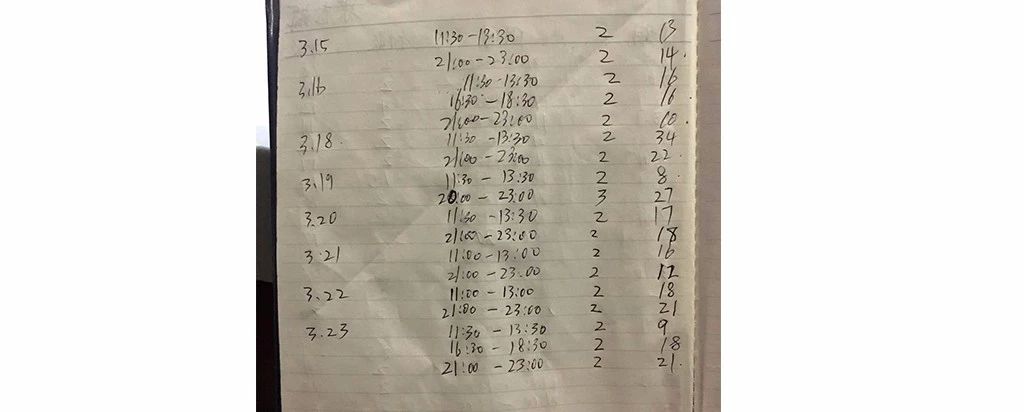 3.15 11:30-13:30 2 13
21:00-23:00 2 14.
3.16 11:30-13:30 2 16
16:30-18:30 2 16
21:00-23:00 2 10.
3.18. 11:30-13:30 2 34
21:00-23:00 2 22.
3.19 11:30-13:30 2 8.
20:00-23:00 3 27
3.20 11:30-13:30 2 17
21:00-23:00 2 18
3.21 11:00-13:00 2 16
21:00-23:00 2 12
3.22 11:00-13:00 2 18
21:00-23:00 2 21
3.23 11:30-13:30 2 9
16:30-18:30 2 18
21:00-23:00 2 21.